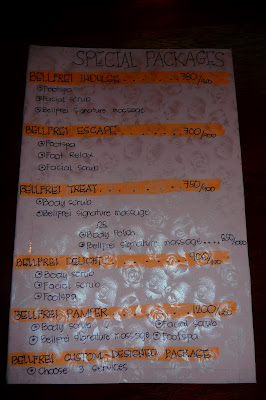 SPECIAL PACKAGES
BELLFREI INDULGE
Footspa
Facial scrub
Bellfrei signature massage
BELLFREI ESCAPE
Footspa
Foot Relax
Facial scrub
BELLFREI TREAT
Body scrub
Bellfrei signature massage
or
Body Polish
Bellfrei signature massage
BELLFREI DELIGHT
Body scrub
Facial scrub
Footspa
BELLFREI PAMPER
Body scrub Facial scrub
Bellfrei signature massage Footspa
BELLFREI CUSTOM DESIGNED PACKAGE
Choose 3 services